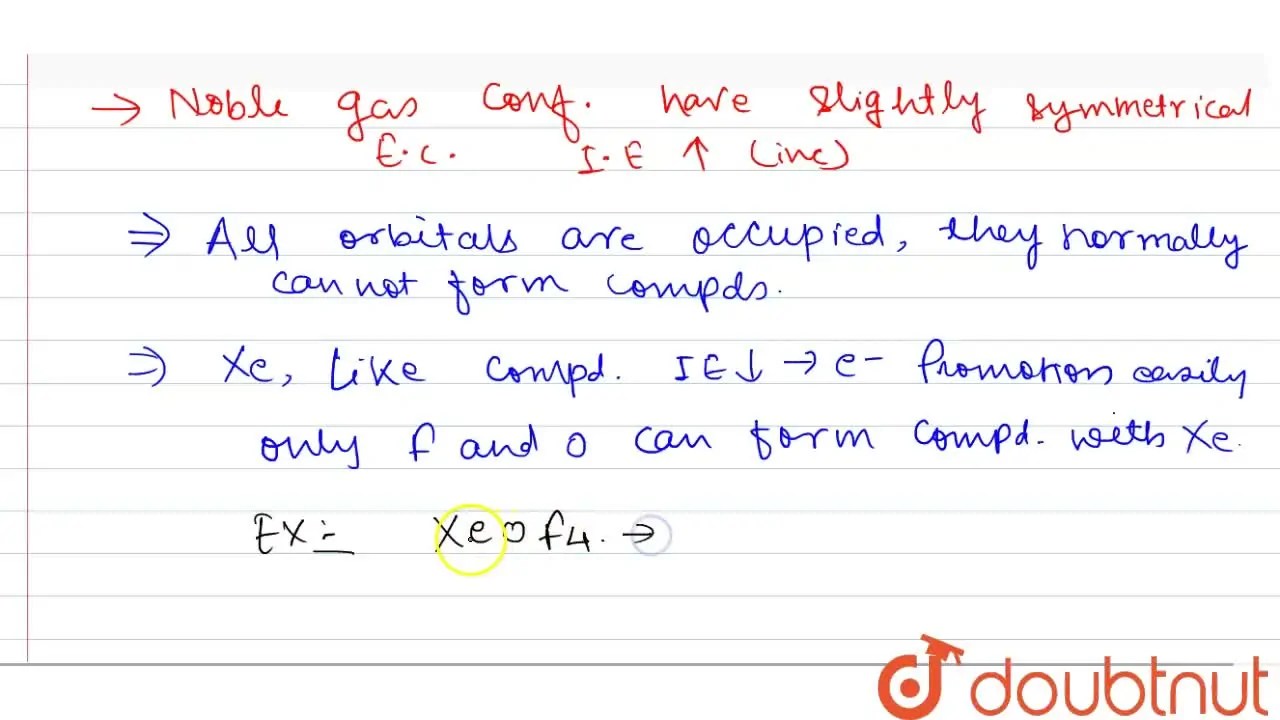 → Noble gas conf. have slightly symmetrical
E.C. I.E ↑ (inc)
⇒ All orbitals are occupied, they normally
cannot form compds.
⇒ Xe, Like compd. IE↓ → e- Promotion easily
only f and O can form compd. with Xe.
EX:- XeOf4. →
doubtnut